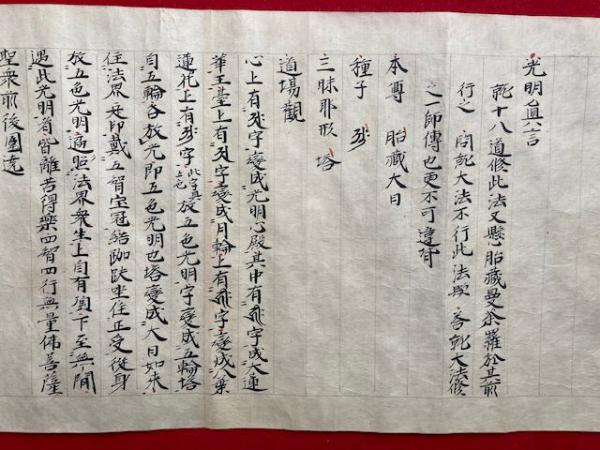 光明真言
就十八道修此法又懸胎藏曼荼羅於其前
行之 問就大法不行此法歟 答就大法修
之一師傳也更不可違背
本尊 胎藏大日
種子
三昧耶形 塔
道場觀
心上有字變成光明心殿其中有字成大蓮
華王臺上有字變成月輪上有字變成八葉
蓮花上有字此字具五色也放五色光明字變成五輪塔
自五輪各放光即五色光明也塔變成大日如來
住法界定印戴五智宝冠結跏趺坐住正受從身
放五色光明遍照法界衆生上自有頂下至無間
遇此光明者皆離苦得樂四智四行無量佛菩薩
聖衆前後圍遶